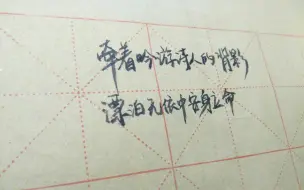 牵着吟游诗人的背影
漂泊无依中安身立命